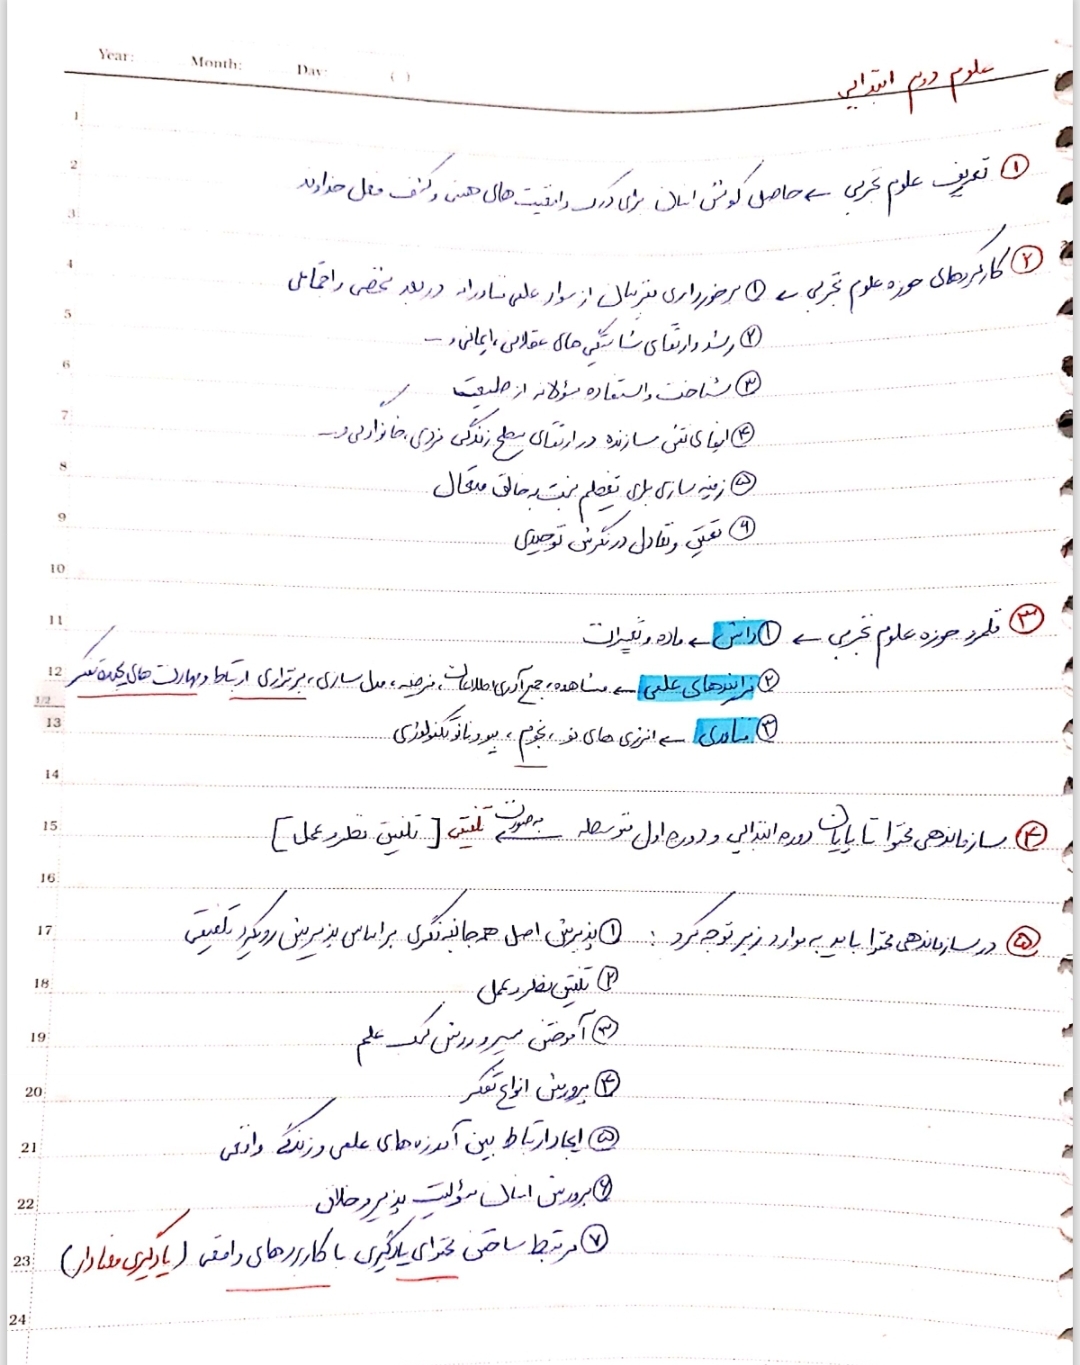 Year: Month: Day: ( )
علوم دوم ابتدایی
① تعریف علوم تجربی ← حاصل کوشش انسان برای درک واقعیت های هستی و کشف فعل خداوند
② کارکردهای حوزه علوم تجربی ← ① برخورداری متربیان از سواد علمی فناورانه در بعد شخصی و اجتماعی
② رشد و ارتقای شایستگی های عقلانی، ایمانی و ...
③ شناخت و استفاده مسئولانه از طبیعت
④ ایفای نقش سازنده در ارتقای سطح زندگی فردی، خانوادگی و ...
⑤ زمینه سازی برای تعظیم نسبت به خالق متعال
⑥ تعمیق و تعادل در نگرش توحیدی
③ قلمرو حوزه علوم تجربی ← ① دانش ← ماده و تغییرات
② فرایندهای علمی ← مشاهده، جمع آوری اطلاعات، فرضیه، مدل سازی، برقراری ارتباط و مهارت های پیچیده تفکر
③ فناوری ← انرژی های نو، نجوم، بیو و نانوتکنولوژی
④ سازماندهی محتوا تا پایان دوره ابتدایی و دوره اول متوسطه به صورت تلفیقی [تلفیق نظر و عمل]
⑤ در سازماندهی محتوا باید به موارد زیر توجه کرد : ① پذیرش اصل همه جانبه نگری بر اساس پذیرش رویکرد تلفیقی
② تلفیق نظر و عمل
③ آموختن مسیر و روش کسب علم
④ پرورش انواع تفکر
⑤ ایجاد ارتباط بین آموزه های علمی و زندگی واقعی
⑥ پرورش انسان مسئولیت پذیر و خلاق
⑦ مرتبط ساختن محتوای یادگیری با کاربردهای واقعی (یادگیری معنادار)